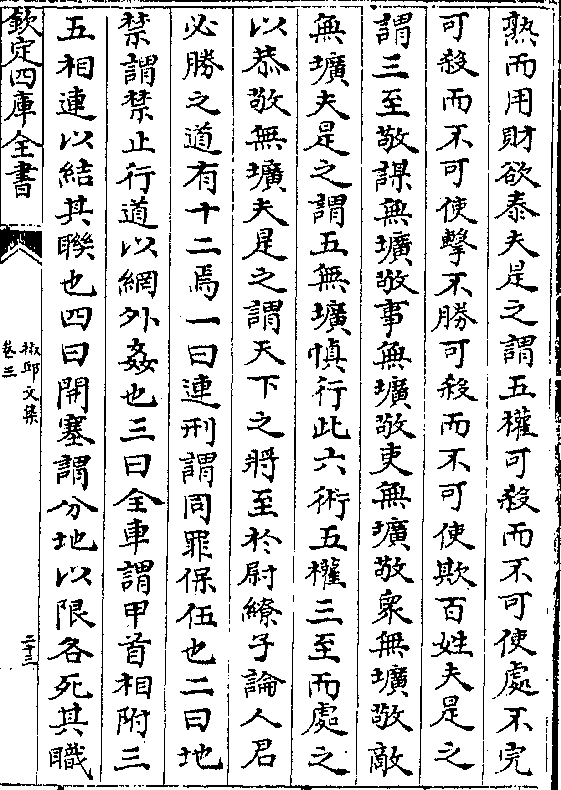 熟而用財欲泰夫是之謂五權可殺而不可使處不完
可殺而不可使擊不勝可殺而不可使欺百姓夫是之
謂三至敬謀無壙敬事無壙敬吏無壙敬衆無壙敬敵
無壙夫是之謂五無壙慎行此六術五權三至而處之
以恭敬無壙夫是之謂天下之將至於尉繚子論人君
必勝之道有十二焉一曰連刑謂同罪保伍也二曰地
禁謂禁止行道以網外姦也三曰全車謂甲首相附三
五相連以結其聨也四曰開塞謂分地以限各死其職
欽定四庫全書
椒邱文集
卷三
二十三